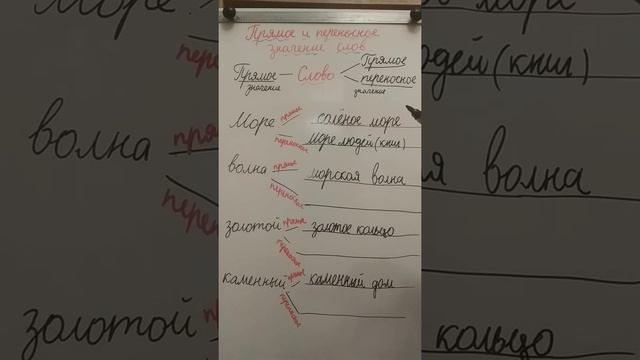 Прямое и переносное
значение слов
Прямое
Прямое — Слово
значение
переносное
значение
Море прямое солёное море
переносн. море людей (книг)
волна прямое морская волна
переносн.
золотой прямое золотое кольцо
переносн.
каменный прямое каменный дом
переносн.